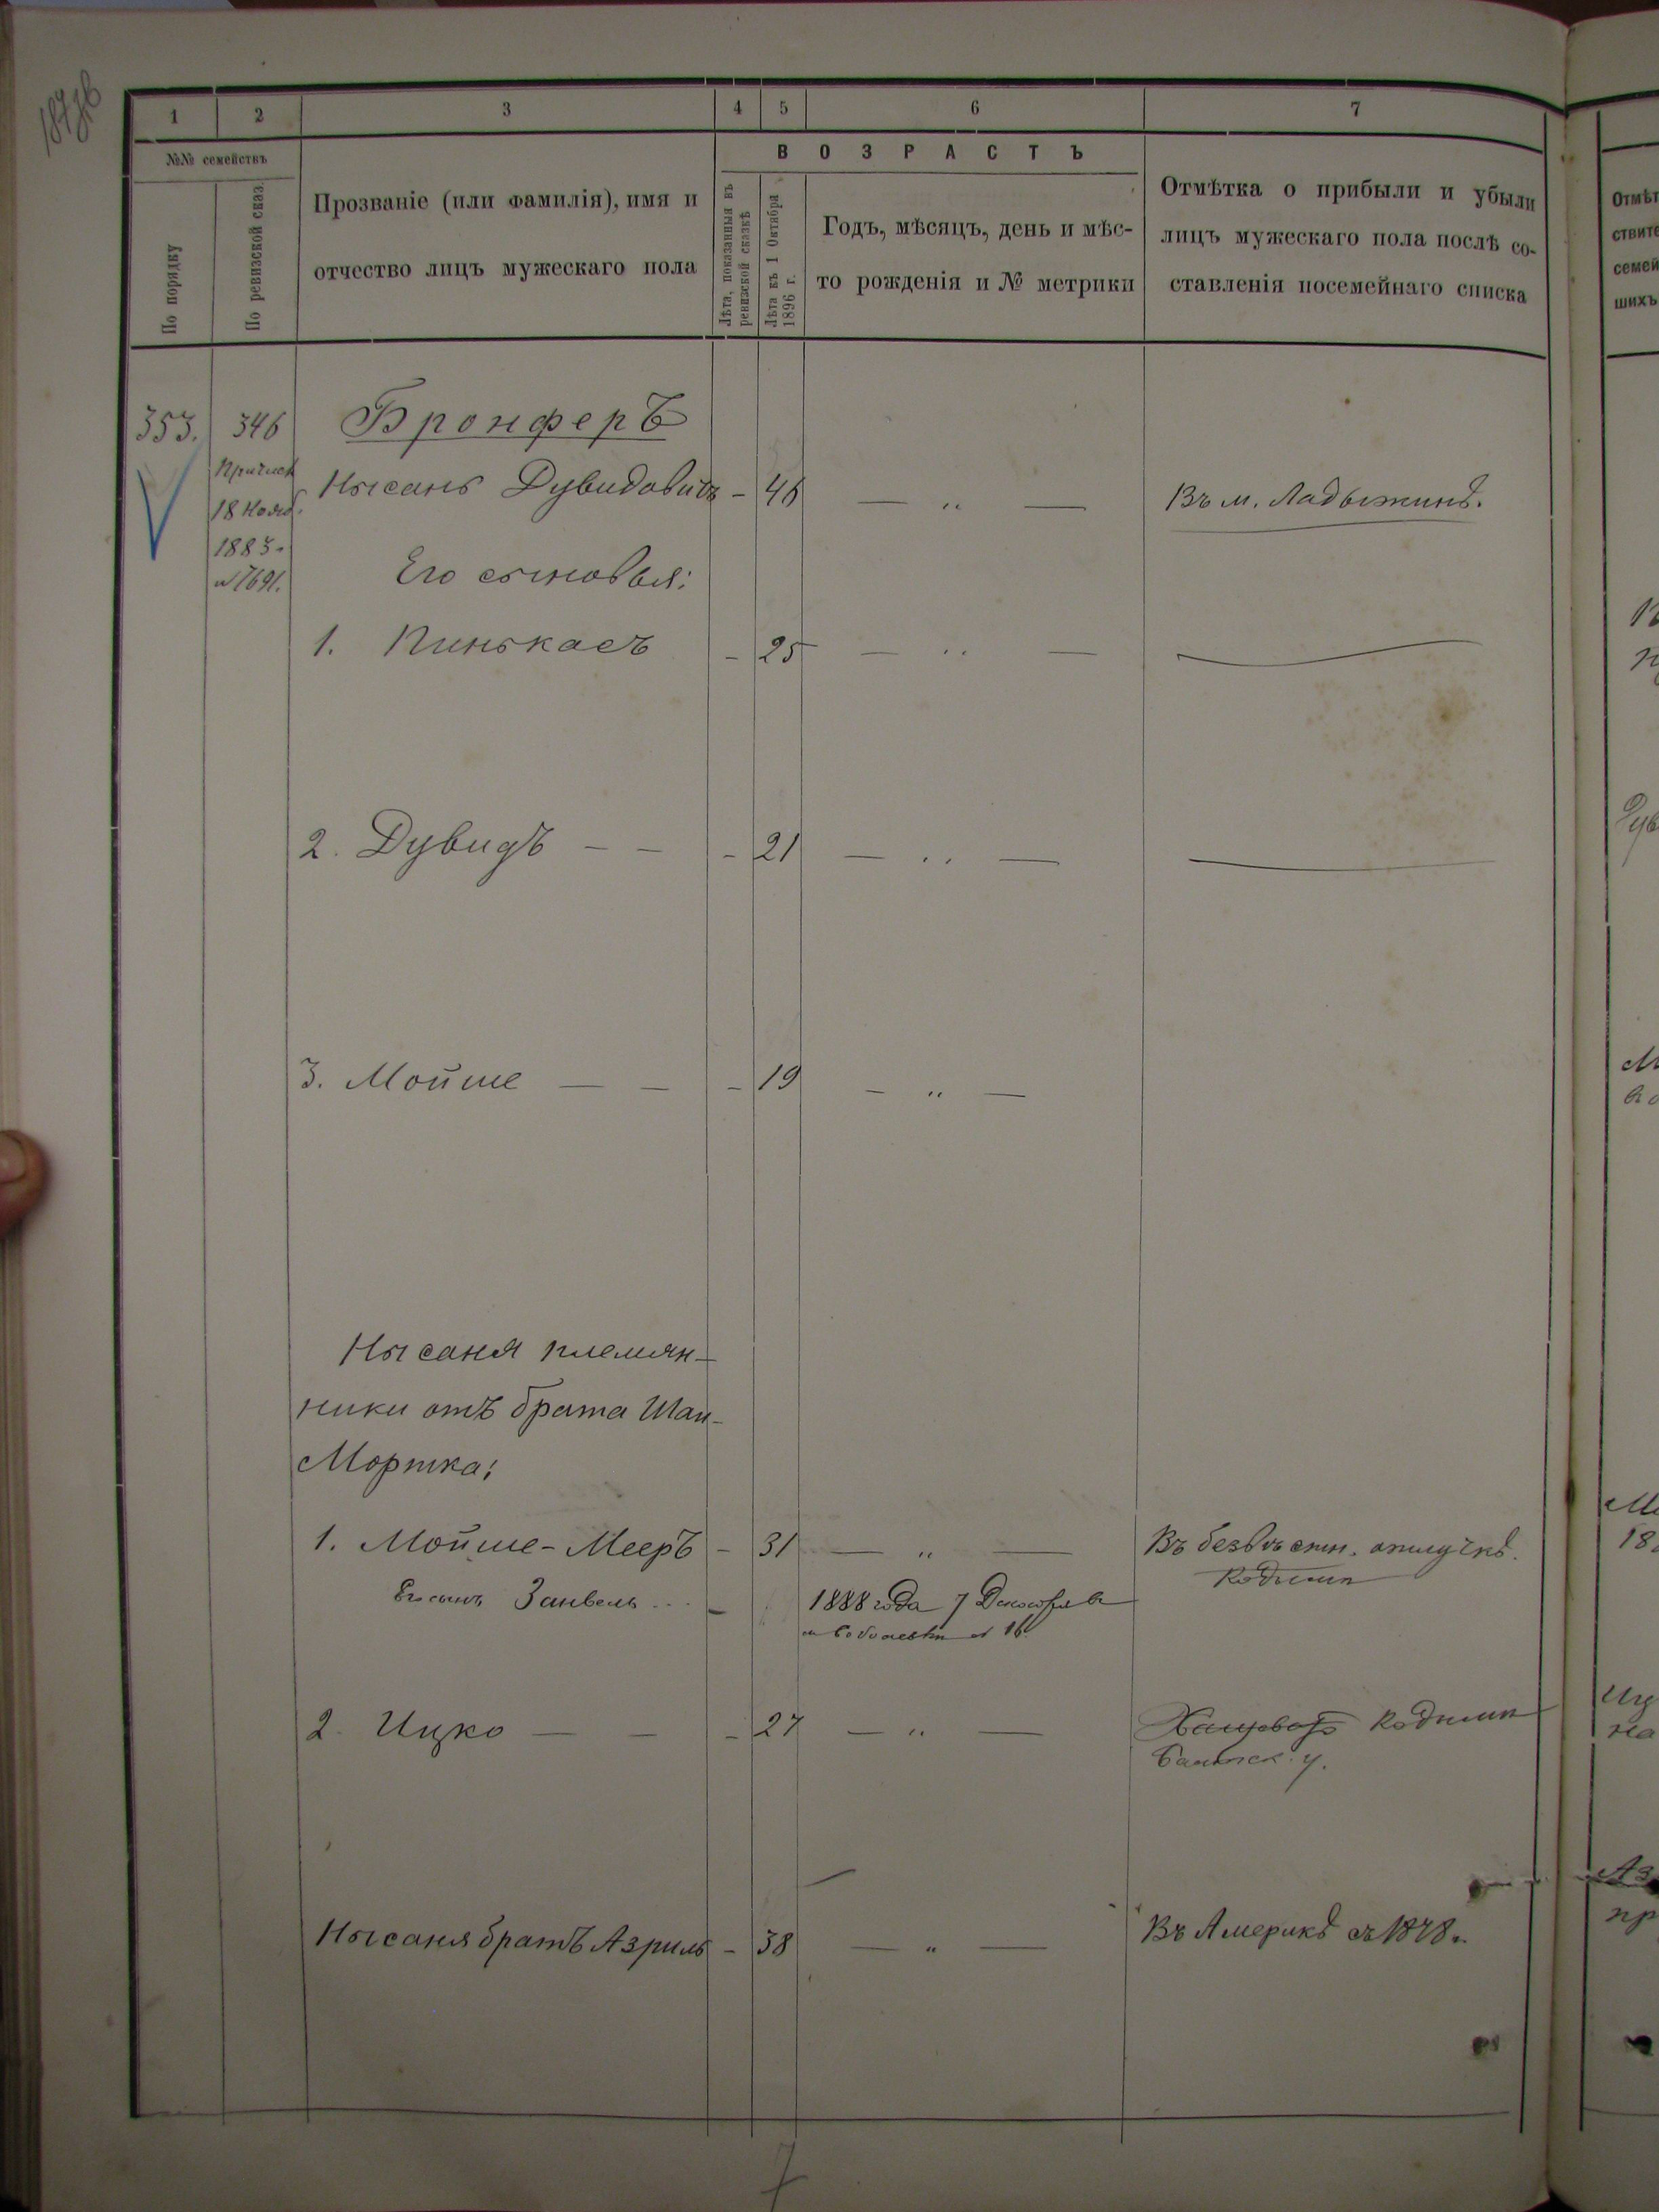 1 2 3 4 5 6 7
№№ семействъ
По порядку
По ревизской сказ.
Прозваніе (или фамилія), имя и
отчество лицъ мужескаго пола
ВОЗРАСТЪ
Лѣта, показанныя въ
ревизской сказкѣ
Лѣта къ 1 Октября
1896 г.
Годъ, мѣсяцъ, день и мѣс-
то рожденія и № метрики
Отмѣтка о прибыли и убыли
лицъ мужескаго пола послѣ со-
ставленія посемейнаго списка
353. 346 Бронферъ
Причисл
18 Нояб.
1883.
№7691.
Нысань Дувидовичъ - 46 — " — Въ м. Ладыжинѣ.
Его сыновья:
1. Пинькасъ - 25 — " —
2. Дувидъ - - - 21 — " —
3. Мойше — — - 19 - " —
Нысаня племян-
ники отъ брата Шаи-
Мортка:
1. Мойше-Мееръ - 31 — " — Въ безвѣстн. отлучкѣ.
Кодыми
Его сынъ Занвель ... - 1888 года 7 Декабря въ
м. Соболевки № 16
2. Ицко — — - 27 — " — Хащевато Кодыми
Балтск. у.
Нысаня братъ Азриль - 38 — " — Въ Америкѣ съ 1878 г.
7